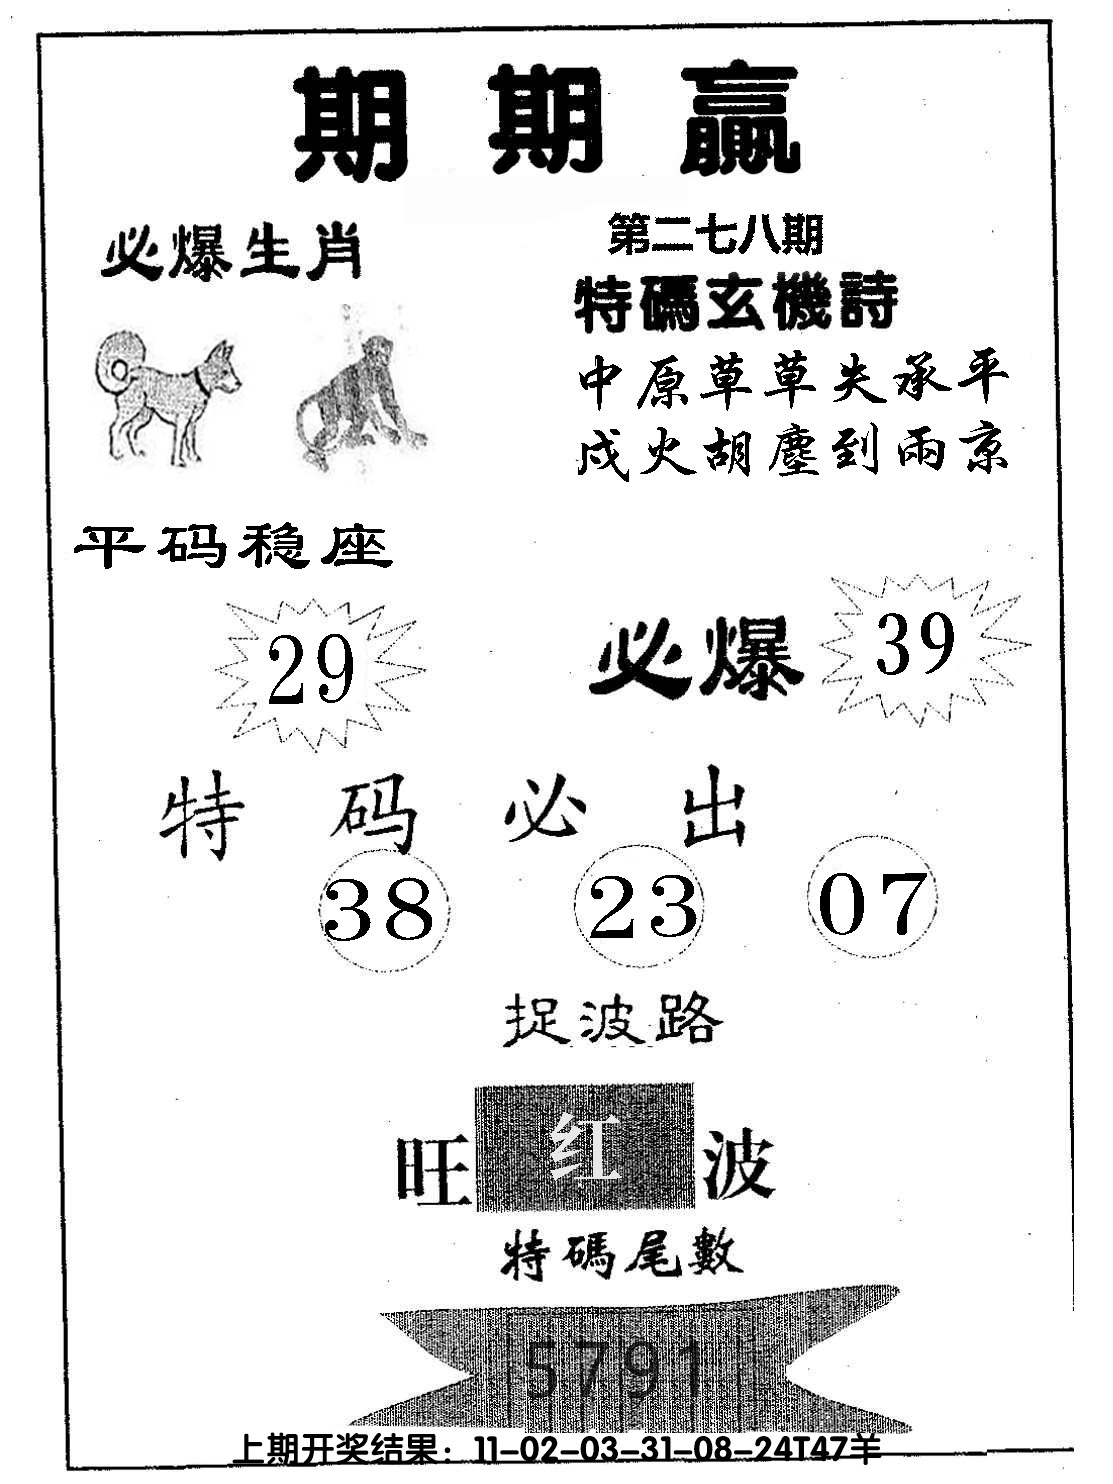 期期赢
必爆生肖
第二七八期
特碼玄機詩
中原草草失承平
戍火胡塵到兩京
平码稳座
29
必爆 39
特码必出
38 23 07
捉波路
旺 红 波
特碼尾數
5791
上期开奖结果：11-02-03-31-08-24T47羊